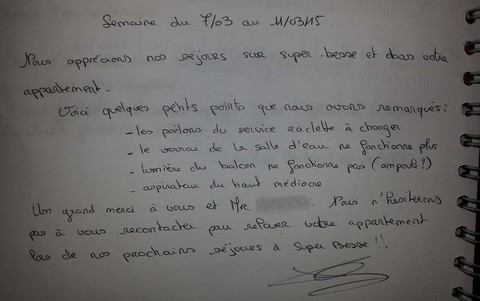 Semaine du 7/03 au 11/03/15.
Nous apprécions nos séjours sur super-besse et dans votre
appartement.
Voici quelques petits points que nous avons remarqués :
- les poëlons du service raclette à changer
- le verrou de la salle d'eau ne fonctionne plus
- lumière du balcon ne fonctionne pas (ampoule?)
- aspirateur du haut médiocre.
Un grand merci à vous et Mr . Nous n'hésiterons
pas à vous recontacter pour relouer votre appartement
lors de nos prochains séjours à Super Besse !!